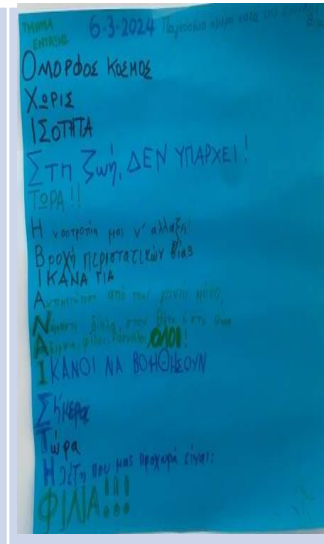 ΤΜΗΜΑ
ΕΝΤΑΞΗΣ
6-3-2024 Παγκόσμια ημέρα κατά της
ΟΜΟΡΦΟΣ ΚΟΣΜΟΣ
ΧΩΡΙΣ
ΙΣΟΤΗΤΑ
ΣΤΗ ζωή, ΔΕΝ ΥΠΑΡΧΕΙ!
ΤΩΡΑ!!
Η νοοτροπία μας ν' αλλάξη!
Βροχή περιστατικών βίας
ΙΚΑΝΑ ΓΙΑ
από τους γονείς μόνο,
δίπλα, στον
φίλοι, δάσκαλοι, ΟΛΟΙ!
ΙΚΑΝΟΙ ΝΑ ΒΟΗΘΗΣΟΥΝ
Σήμερα
Τώρα
Η λέξη που μας προχωρά είναι:
ΦΙΛΙΑ!!!